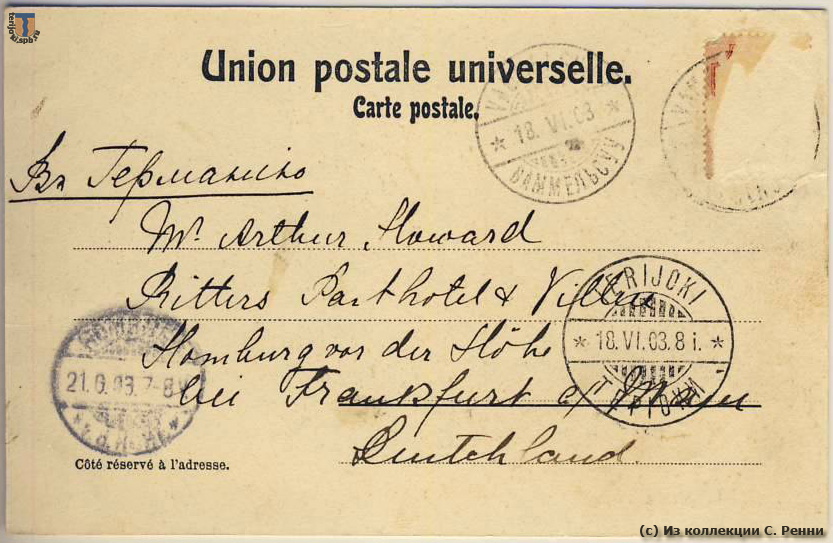 terijoki.spb.ru
Union postale universelle.
Carte postale.
18. VI. 03
ВАММЕЛЬСУУ
Въ Германию
Mr. Arthur Howard
Ritters Parkhotel & Villas
Homburg vor der Höhe
bei Frankfurt a/ Main
Deutchland.
TERIJOKI
18. VI. 03. 8 i.
21.6.03. 7-8
Côté réservé à l'adresse.
(c) Из коллекции С. Ренни